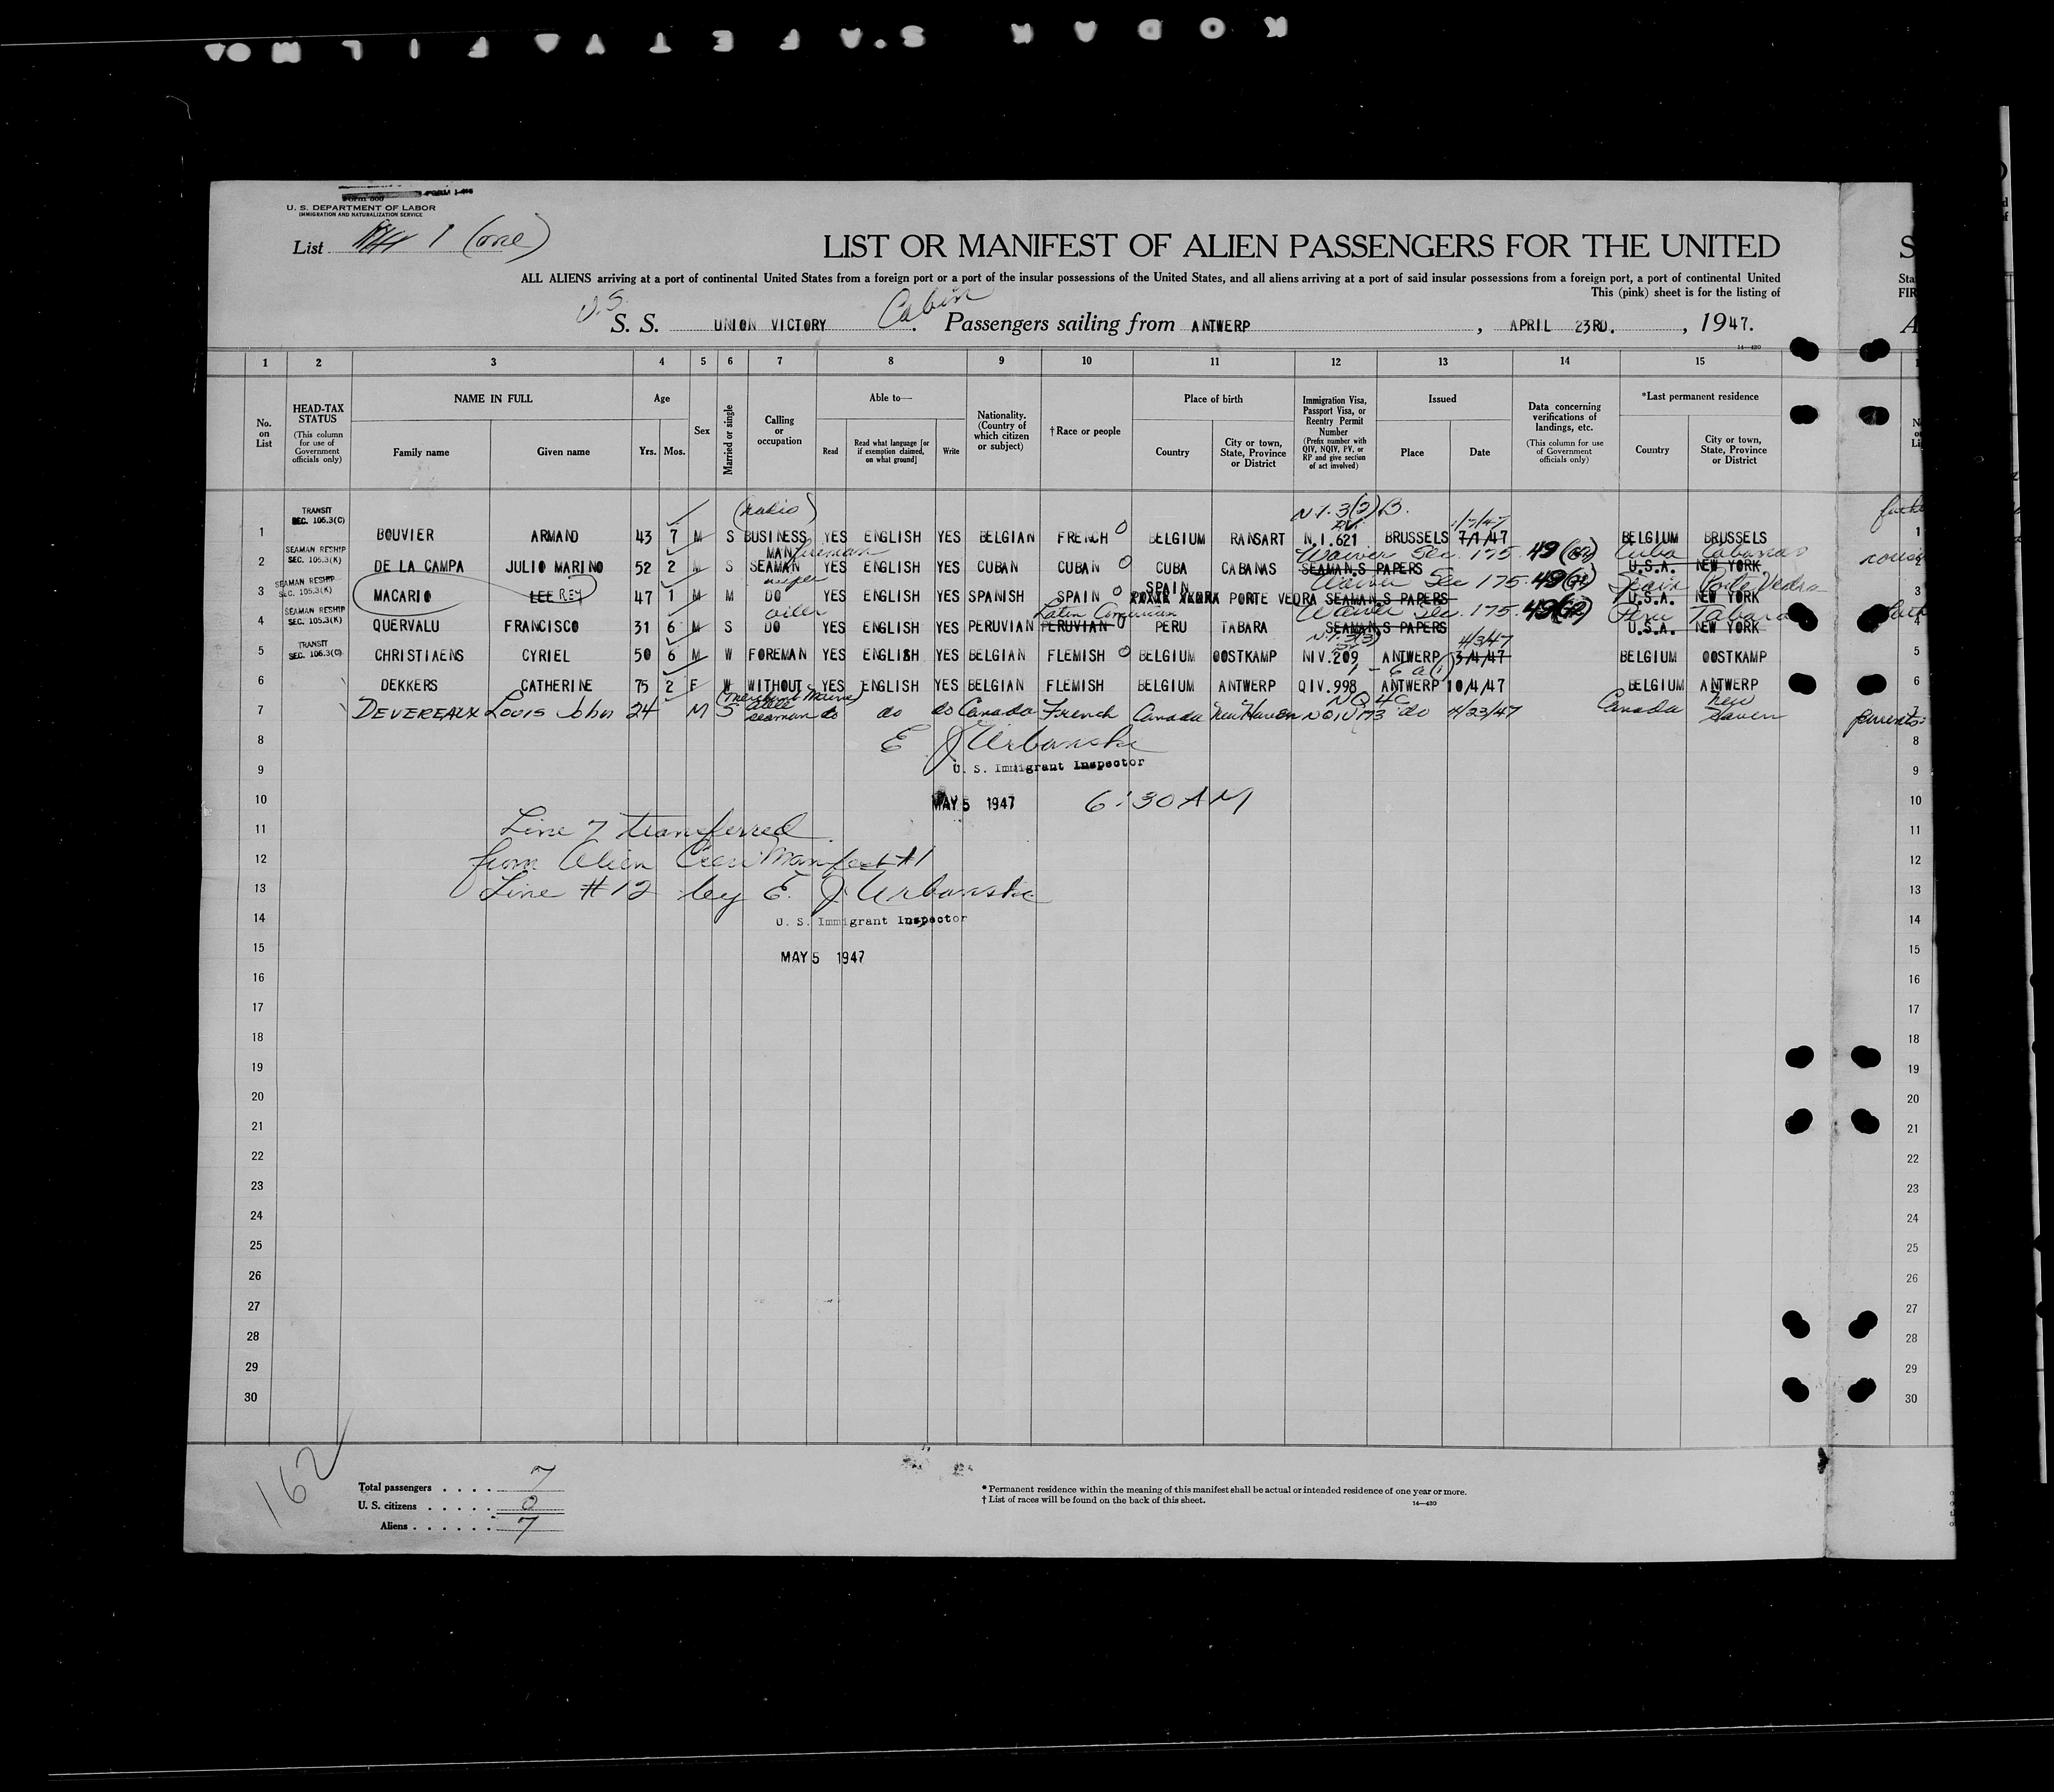 KODAK SAFETY FILM
FORM I-415
Form 500
U. S. DEPARTMENT OF LABOR
IMMIGRATION AND NATURALIZATION SERVICE
List 1 (one)
LIST OR MANIFEST OF ALIEN PASSENGERS FOR THE UNITED
ALL ALIENS arriving at a port of continental United States from a foreign port or a port of the insular possessions of the United States, and all aliens arriving at a port of said insular possessions from a foreign port, a port of continental United
This (pink) sheet is for the listing of
U.S. Cabin
S. S. UNION VICTORY Passengers sailing from ANTWERP, APRIL 23RD., 1947.
14—430
1 2 3 4 5 6 7 8 9 10 11 12 13 14 15
No. on List
HEAD-TAX STATUS (This column for use of Government officials only)
NAME IN FULL Family name Given name
Age Yrs. Mos.
Sex
Married or single
Calling or occupation
Able to— Read Read what language [or if exemption claimed, on what ground] Write
Nationality. (Country of which citizen or subject)
†Race or people
Place of birth Country City or town, State, Province or District
Immigration Visa, Passport Visa, or Reentry Permit Number (Prefix number with QIV, NQIV, PV, or RP and give section of act involved)
Issued Place Date
Data concerning verifications of landings, etc. (This column for use of Government officials only)
*Last permanent residence Country City or town, State, Province or District
TRANSIT SEC. 105.3(C) (radio) N.I. 3(2) B.
1 BOUVIER ARMAND 43 7 M S BUSINESS MAN YES ENGLISH YES BELGIAN FRENCH BELGIUM RANSART N.I.621 BRUSSELS 7/1/47 1/7/47 BELGIUM BRUSSELS 1
SEAMAN RESHIP SEC. 105.3(K) fireman Waiver Sec. 175.49 Cuba Cabanas
2 DE LA CAMPA JULIO MARINO 52 2 M S SEAMAN YES ENGLISH YES CUBAN CUBAN CUBA CABANAS SEAMAN.S PAPERS U.S.A. NEW YORK
SEAMAN RESHIP SEC. 105.3(K) wiper SPAIN Waiver Sec 175.49 Spain Porte Vedra
3 MACARIO LEE REY 47 1 M M DO YES ENGLISH YES SPANISH SPAIN PORTE VEDRA SEAMAN.S PAPERS U.S.A. NEW YORK 3
SEAMAN RESHIP SEC. 105.3(K) oiler Latin American Waiver Sec. 175.49 Peru Tabara
4 QUERVALU FRANCISCO 31 6 M S DO YES ENGLISH YES PERUVIAN PERUVIAN PERU TABARA SEAMAN.S PAPERS U.S.A. NEW YORK 4
TRANSIT SEC. 105.3(C) 4/3/47
5 CHRISTIAENS CYRIEL 50 6 M W FOREMAN YES ENGLISH YES BELGIAN FLEMISH BELGIUM OOSTKAMP NIV.209 ANTWERP 3/4/47 BELGIUM OOSTKAMP 5
6 DEKKERS CATHERINE 75 2 F W WITHOUT YES ENGLISH YES BELGIAN FLEMISH BELGIUM ANTWERP QIV.998 ANTWERP 10/4/47 BELGIUM ANTWERP 6
(Merchant Marine) NQ 4c
7 DEVEREAUX Louis John 24 M S able seaman do do do Canada French Canada New Haven NQIV 173 do 4/23/47 Canada New Haven parents: 7
8 E J Urbanski 8
9 U. S. Immigrant Inspector 9
10 MAY 5 1947 6:30 AM 10
11 Line 7 transferred 11
12 from Alien Crew Manifest #1 12
13 Line #12 by E. J Urbanski 13
14 U. S. Immigrant Inspector 14
15 MAY 5 1947 15
16 16
17 17
18 18
19 19
20 20
21 21
22 22
23 23
24 24
25 25
26 26
27 27
28 28
29 29
30 30
162
Total passengers . . . . 7
U. S. citizens . . . . . 0
Aliens . . . . . . 7
* Permanent residence within the meaning of this manifest shall be actual or intended residence of one year or more.
† List of races will be found on the back of this sheet.
14—430